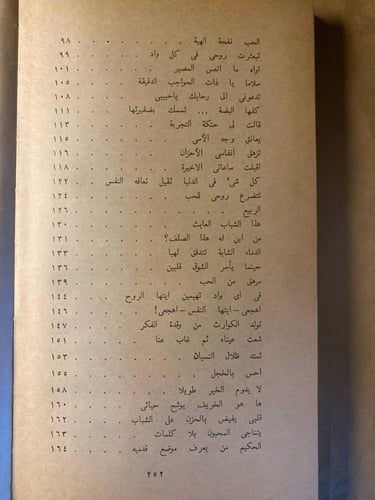 الحب نفحة الهية . . . . . . . ٩٨
تبعثرت روحى فى كل واد . . . . . ٩٩
اواه ما اتعس المصير . . . . . . ١٠١
سلاما يا ذات الحواجب الدقيقة . . . . ١٠٥
تدعونى الى رحابك ياحبيبى . . . . . ١٠٨
كفها البضة ... تمسك بضفيرتها . . . . ١١١
قالت لى حنكة التجربة . . . . . . ١١٣
يعانق وجه الأسى . . . . . . . ١١٥
تزهق انفاسى الأحزان . . . . . . ١١٦
اقبلت ساعاتى الاخيرة . . . . . . ١١٨
كل شىء فى الدنيا ثقيل تعافه النفس . . . ١٢٢
تتضرع روحى للحب . . . . . . ١٢٤
الربيع . . . . . . . . . ١٢٦
هذا الشباب العابث . . . . . . ١٣٠
من اين له هذا الصلف؟ . . . . . . ١٣١
الدماء الشابة تتدفق لهبا . . . . . ١٣٣
حينما يأسر الشوق قلبين . . . . . ١٣٦
مرهق من الحب . . . . . . . ١٣٩
فى اى واد تهيمين ايتها الروح . . . . ١٤٤
اهجعى - ايتها النفس - اهجعى! . . . . ١٤٦
تولد الكوارث من وقدة الفكر . . . . ١٤٧
شعت عيناه ثم غاب عنا . . . . . ١٥١
تمتد ظلال النسيان . . . . . . ١٥٣
احس بالخجل . . . . . . . ١٥٥
لا يدوم الخير طويلا . . . . . . ١٥٨
ها هو الخريف يوشح حياتى . . . . . ١٦٠
قلبى يفيض بالحزن على الشباب . . . . ١٦٢
يتناجى المحبون بلا كلمات . . . . . ١٦٣
الحكيم من يعرف موضع قدميه . . . . ١٦٤
٢٥٢